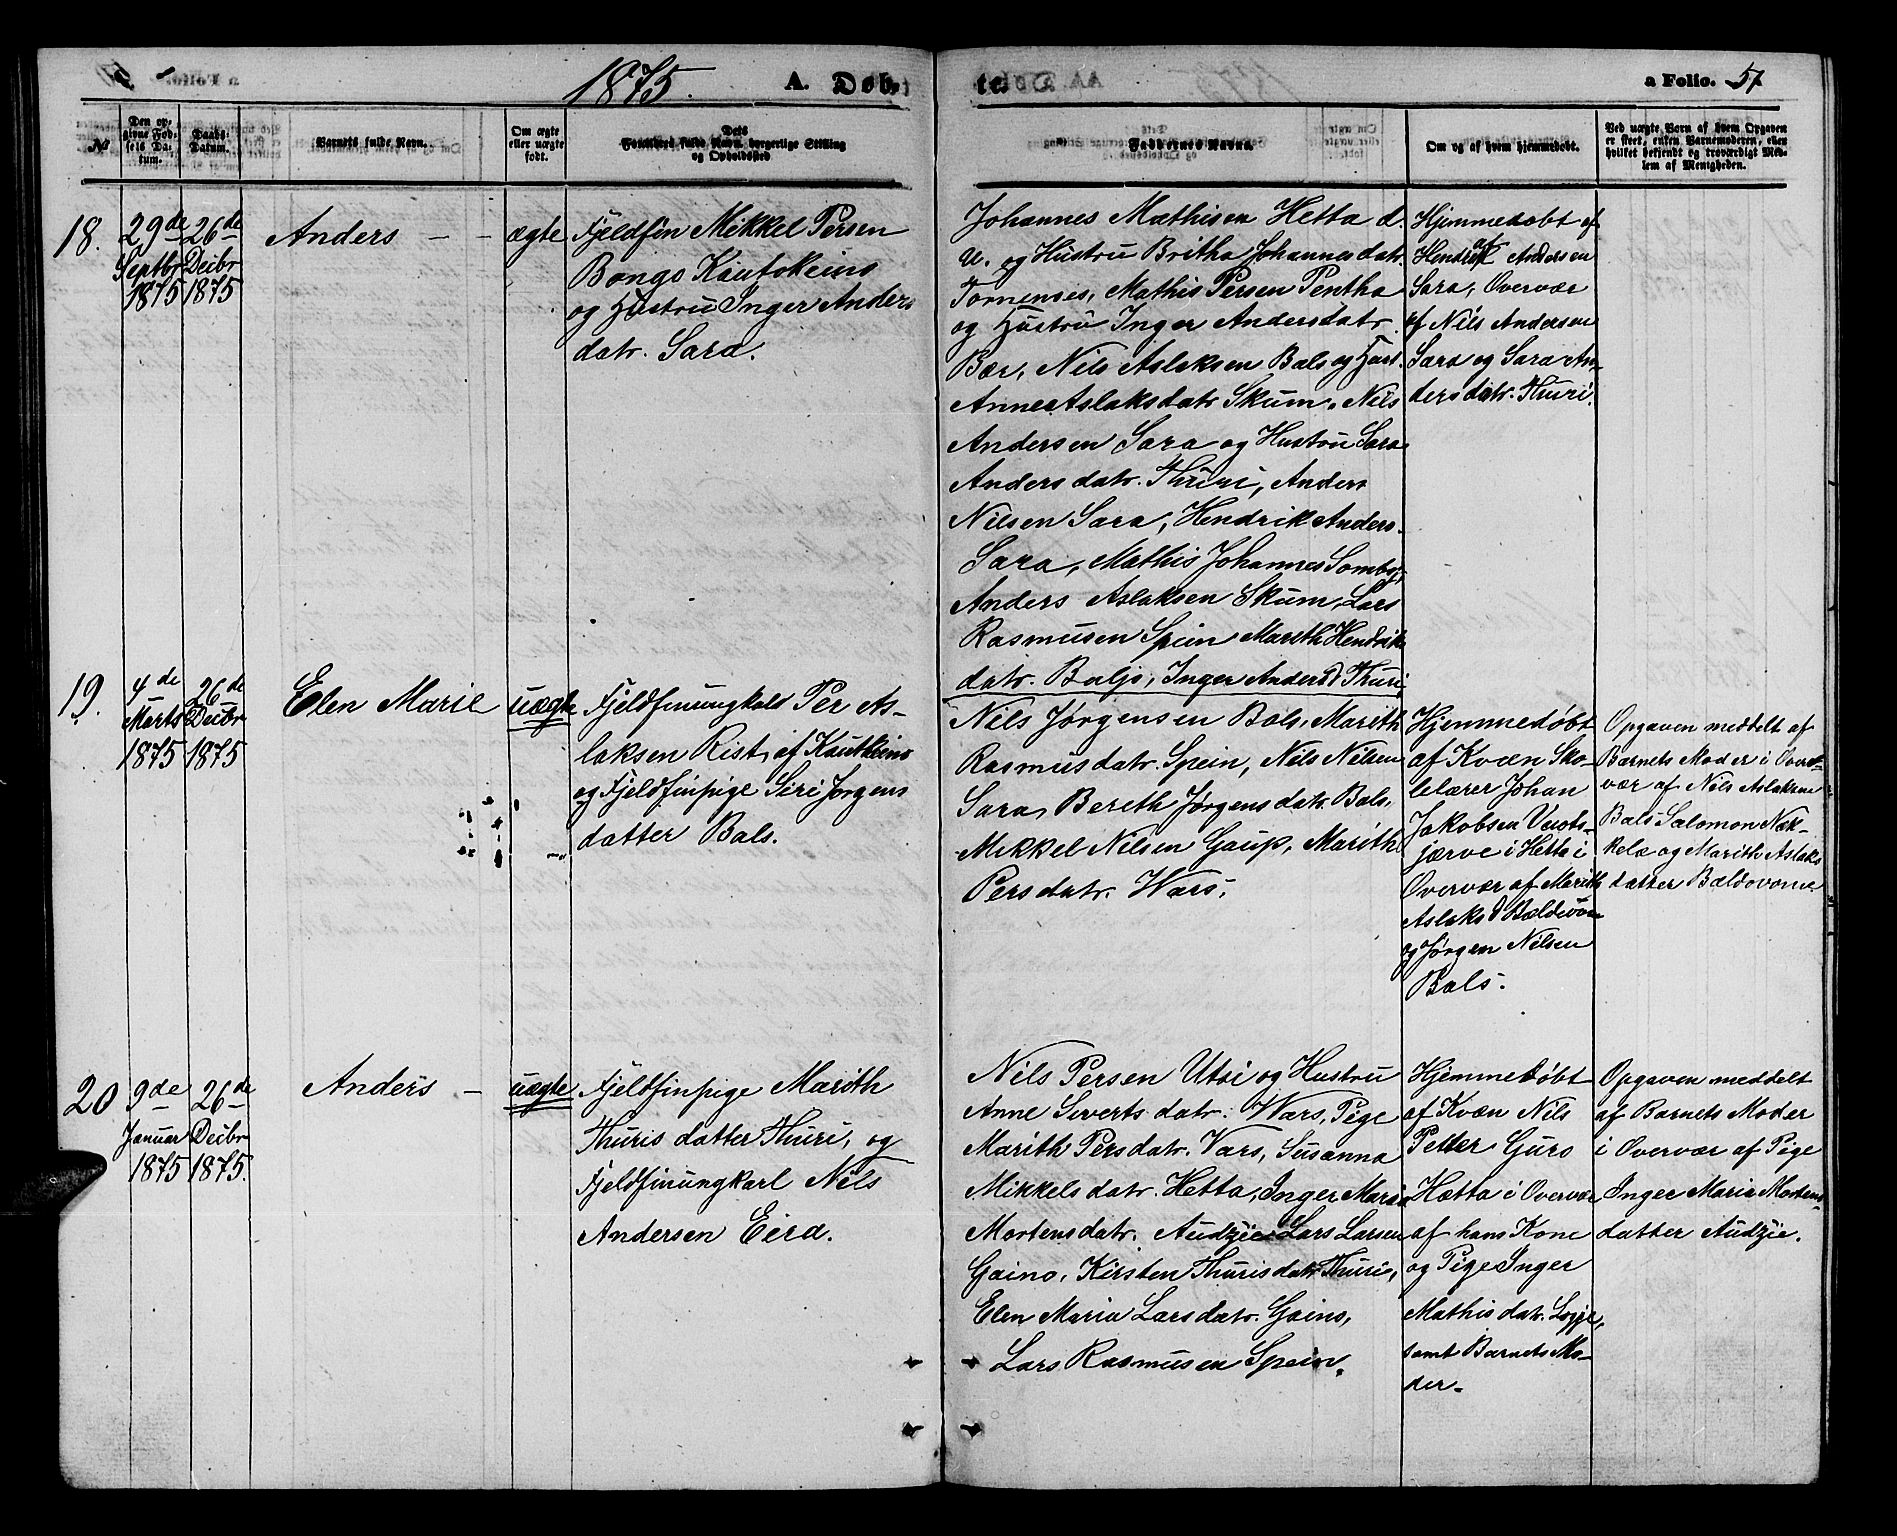 1875. A. Døb-
№
Den op-
givne Fød-
sels Da-
tum.
Daabs-
Datum.
Barnets fulde Navn.
Om ægte
eller uægte
født.
Dets
Forældres fulde Navn, borgerlige Stilling
og Opholdsted
18.
29de
Septbr
1875
26de
Decbr
1875
Anders - -
ægte
Fjeldfin Mikkel Persen
Bongo Kautokeino
og Hustru Inger Anders
datr. Sara.
19.
4de
Marts
1875
26de
Decbr
1875
Elen Marie
uægte
Fjeldfinungkald Per As-
laksen Rist, af Kautkeino
og Fjeldfinpige Siri Jørgens
datter Bals.
20
9de
Januar
1875
26de
Decbr
1875.
Anders -
uægte
Fjeldfinpige Marith
Thuris datter Thuri, og
Fjeldfinungkarl Nils
Andersen Eira.
te. a Folio. 57
Faddernes Navne.
Om og af hvem hjemmedøbt.
Ved uægte Børn af hvem Opgaven
er skeet, enten Barnemoderen, eller
hvilket bekjendt og troværdigt Med-
lem af Menigheden.
Johannes Mathisen Hetta d.
u. og Hustru Britha Johannesdatr.
Tornensis, Mathis Persen Pentha
og Hustru Inger Andersdatr
Bær, Nils Aslaksen Bals og Hust.
Anne Aslaksdatr Skum, Nils
Andersen Sara og Hustru Sara
Andersdatr. Thuri, Anders
Nilsen Sara, Hendrik Anders.
Sara, Mathis Johannes Somby,
Anders Aslaksen Skum, Lars
Rasmusen Spein Marith Hendrik
datr. Baljo, Inger Andersd Thuri,
Hjemmedøbt af
Hendrik Andersen
Sara, Overvær
af Nils Andersen
Sara og Sara An-
dersdatr. Thuri.
Nils Jørgensen Bals, Marith
Rasmusdatr. Spein, Nils Nilsen
Sara, Bereth Jørgensdatr. Bals,
Mikkel Nilsen Gaup, Marith
Persdatr. Wars,
Hjemmedøbt
af Kvæn Sko-
lelærer Johan
Jakobsen Vuots-
jærve i Hetta i
Overvær af Marith
Aslaksd Bældovom
og Jørgen Nilsen
Bals.
Opgaven meddelt af
Barnets Moder i Over-
vær af Nils Aslaksen
Bals Salomon Næk-
kelæ og Marith Aslaks
datter Bældovome
Nils Persen Utsi og Hustru
Anne Siverts datr: Wars, Pige
Marith Persdatr. Vars, Susanna
Mikkelsdatr. Hetta, Inger Maria
Mortensdatr. Audzie Lars Larsen
Gaino, Kirsten Thurisdatr Thuris,
Elen Maria Larsdatr. Gaino,
Lars Rasmusen Spein.
Hjemmedøbt
af Kvæn Nils
Petter Gurs
Hætta i Overvær
af hans Kone
og Pige Inger
Mathisdatr. Logje,
samt Barnets Mo-
der.
Opgaven meddelt
af Barnets Moder
i Overvær af Pige
Inger Maria Mortens-
datter Audzie.